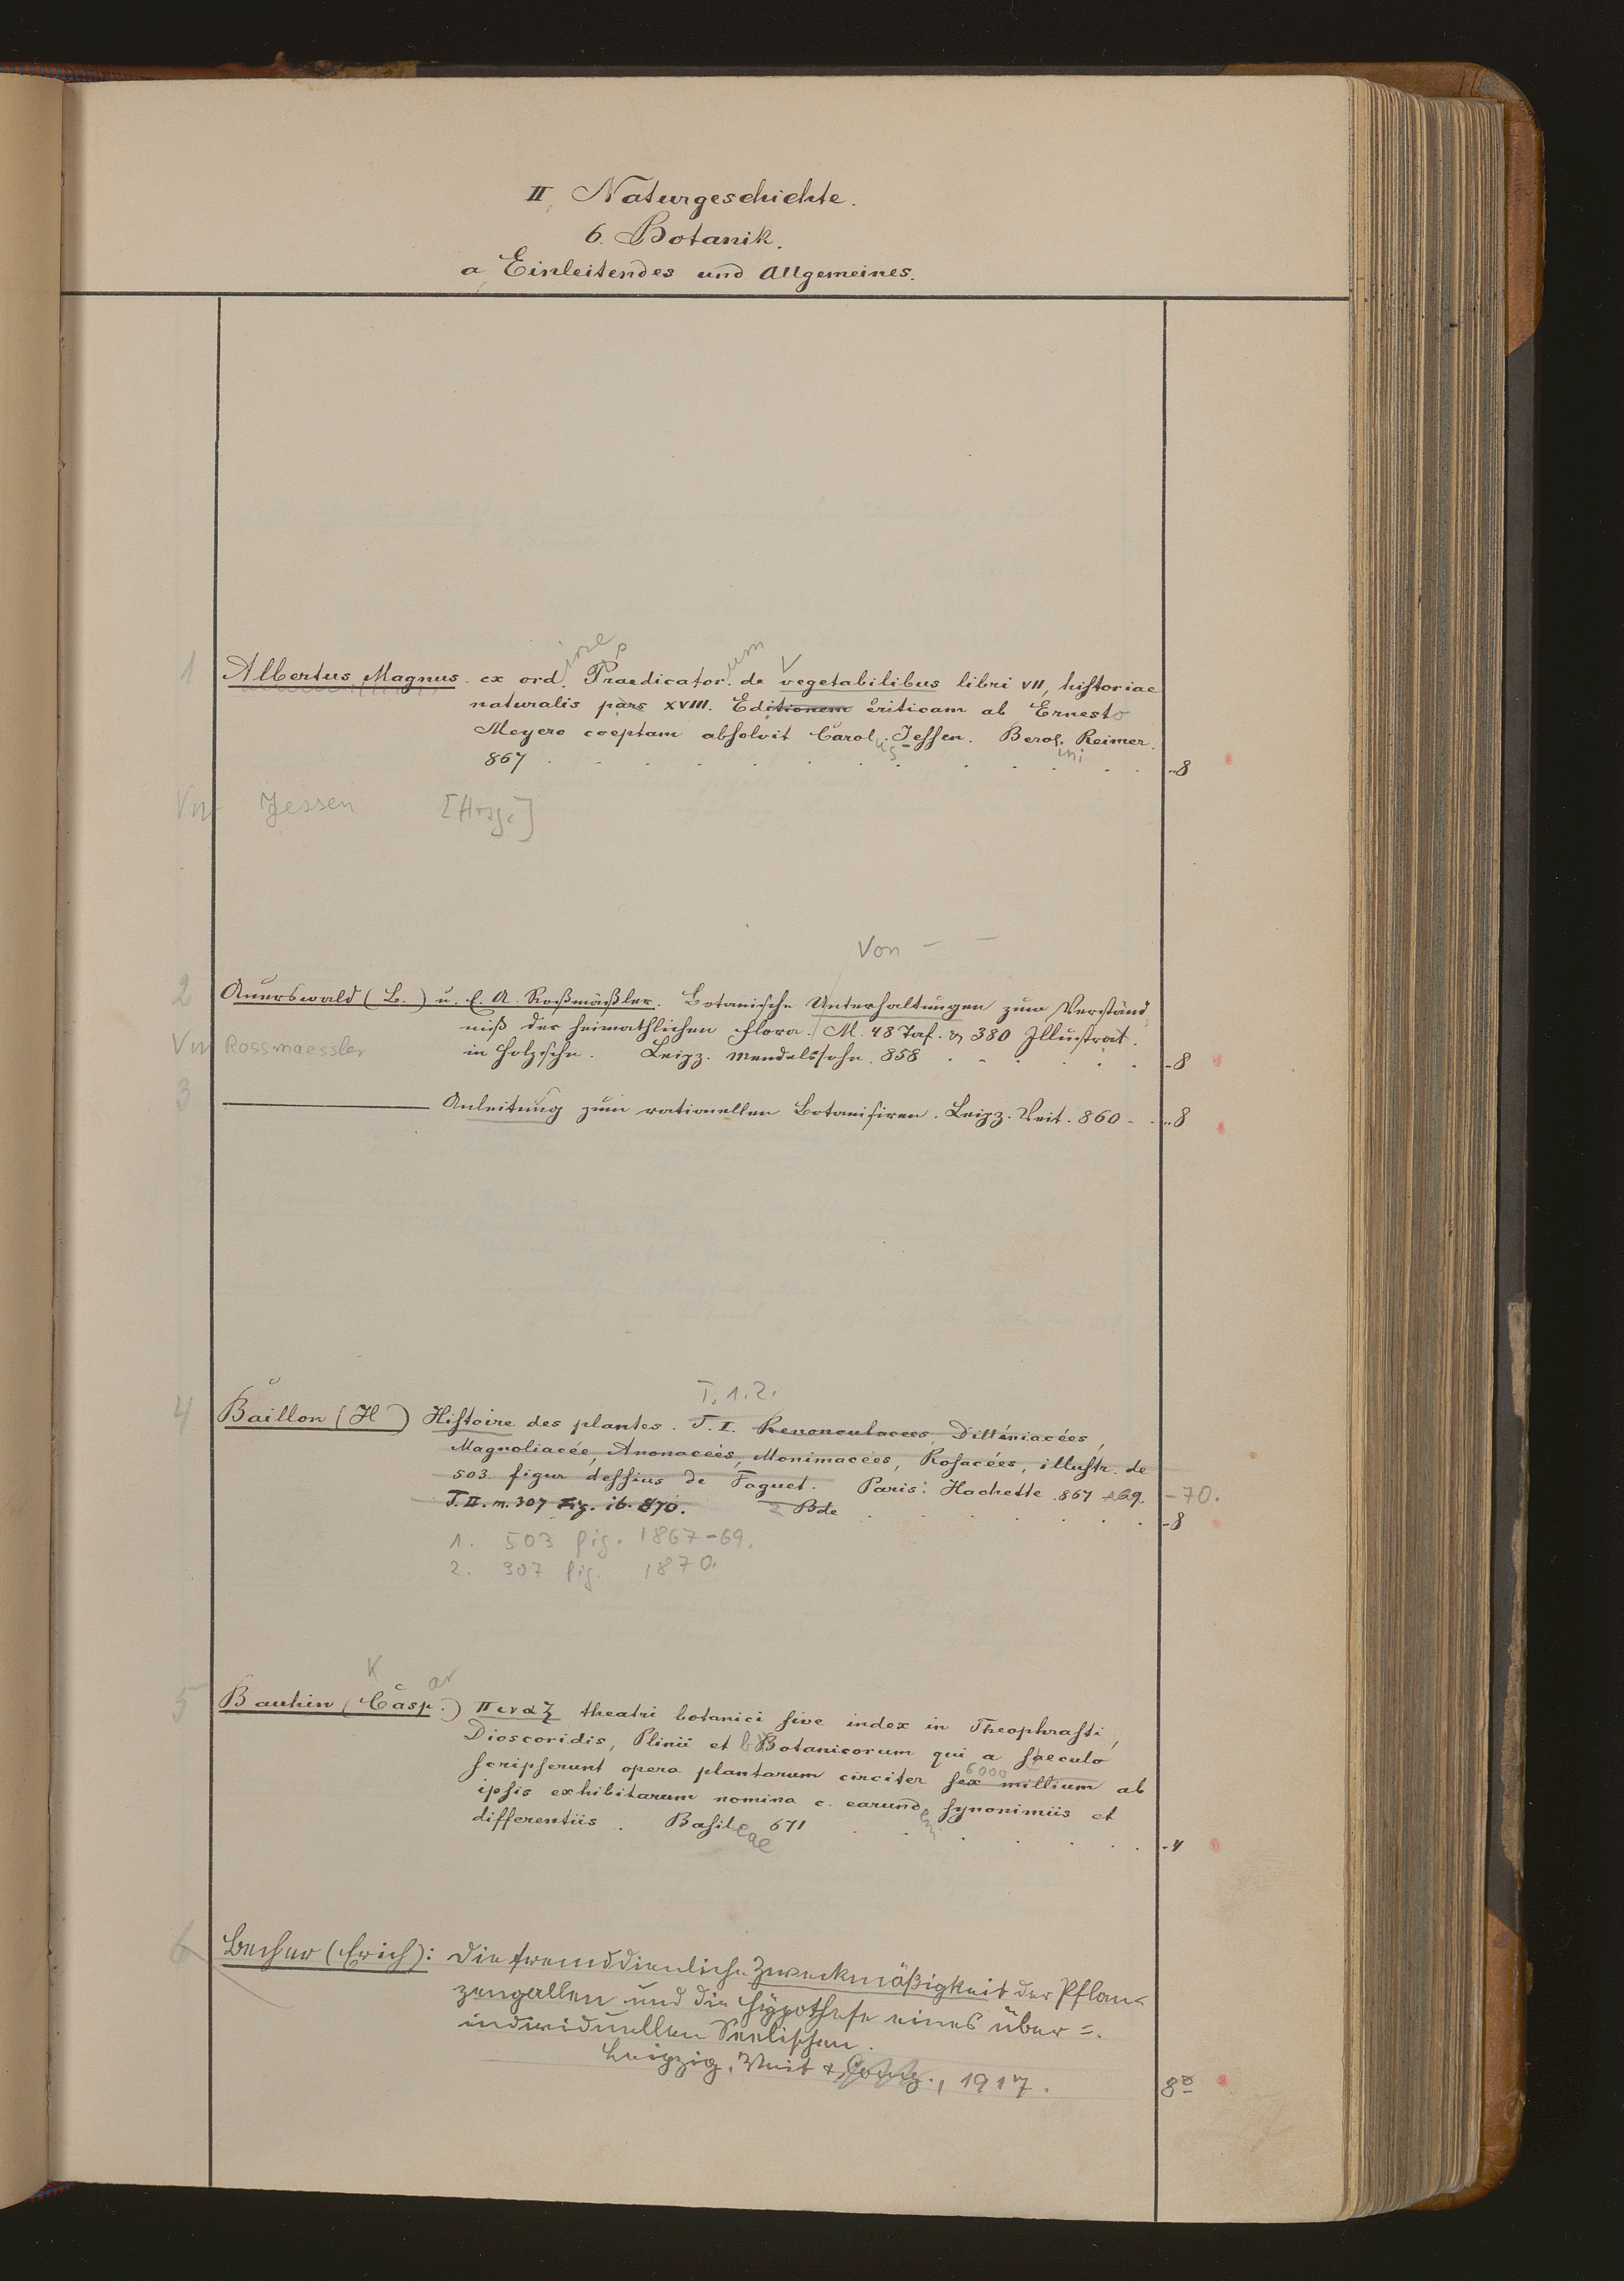 II. Naturgeschichte.
6. Botanik.
a Einleitendes und Allgemeines.
ine p um V
1 Albertus Magnus ex ord. Praedicator. de vegetabilibus libri VII, historiae
naturalis pars XVIII. Editionem criticam ab Ernesto
Meyero coeptam absolvit Carol. Jessen. Berol. Reimer.
us ini
867 . . . . . . . . . . -8
Jessen [Hrsg.]
Von – –
2 Auerswald (B.) u. E. A. Roßmäßler. Botanische Unterhaltungen zum Verständ
niß der heimathlichen Flora. M. 48 Taf. & 380 Illustrat.
Rossmaessler in Holzschn. Leipz. Mendelssohn. 858 . . . . . -8
3 ——— Anleitung zum rationellen Botanisiren. Leipz. Veit. 860 . . -8
T. 1. 2.
4 Baillon (H ) Histoire des plantes. T. I. Renonculacees, Dilléniacées,
Magnoliacée, Anonaceés, Monimacées, Rosacées, illustr. de
503 figur dessius de Faguet. Paris: Hachette .867 -69. -70.
T. II. m. 307 Fig. ib. 870. 2 Bde . . . . . . -8
1. 503 fig. 1867-69.
2. 307 fig. 1870.
K ar
5 Bauhin (Casp.) Πιναξ theatri botanici sive index in Theophrasti,
Dioscoridis, Plinii et b Botanicorum qui a saeculo
6000
scripserunt opera plantarum circiter sex millium ab
ipsis exhibitarum nomina c. earund synonimiis et
em
differentiis . Basil 671 . . . . . . -4
eae
6 Becher (Erich): Die fremddienliche Zweckmäßigkeit der Pflan-
zengallen und die Hypothese eines über=
individuellen Seelischen.
Leipzig, Veit & Comp., 1917. 8º